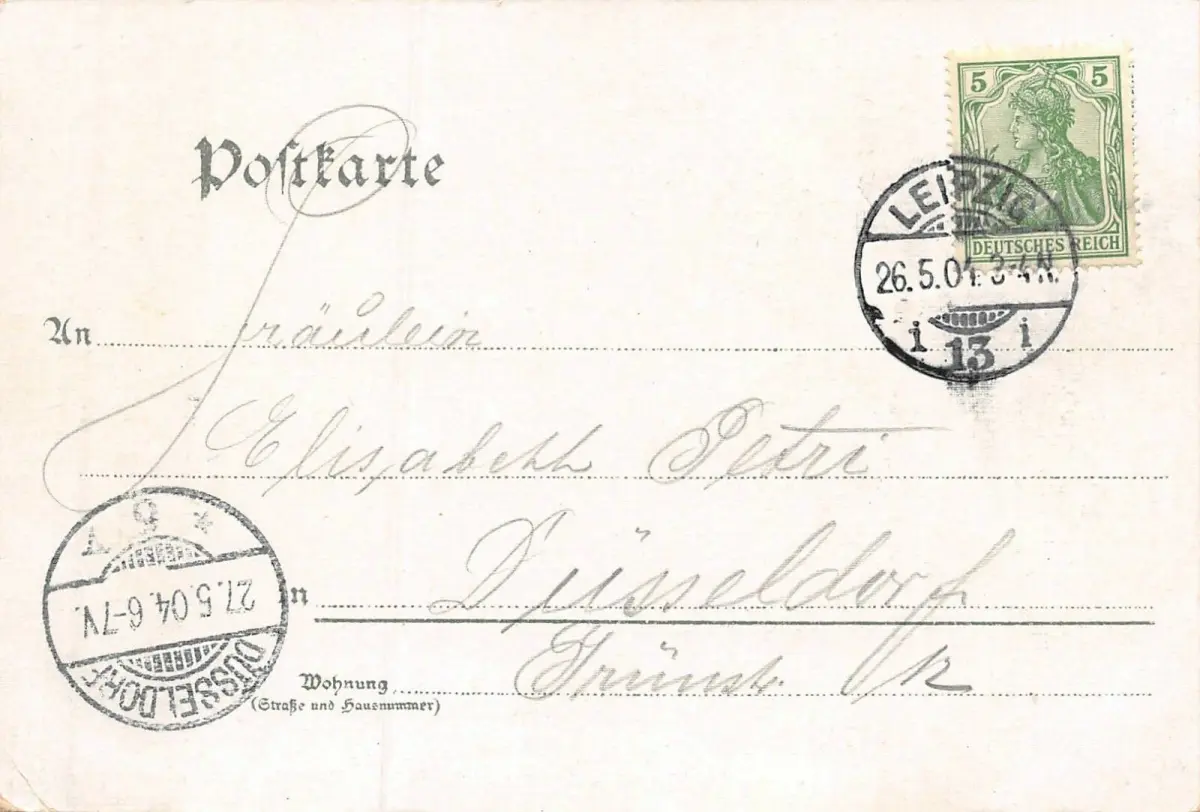 5 5
DEUTSCHES REICH
Postkarte
LEIPZIG
26.5.04. 3-4N.
i 13 i
An Fräulein
Elisabeth Petri
in Düsseldorf
Wohnung Grünstr.
(Straße und Hausnummer)
DÜSSELDORF
27.5.04. 6-7N.